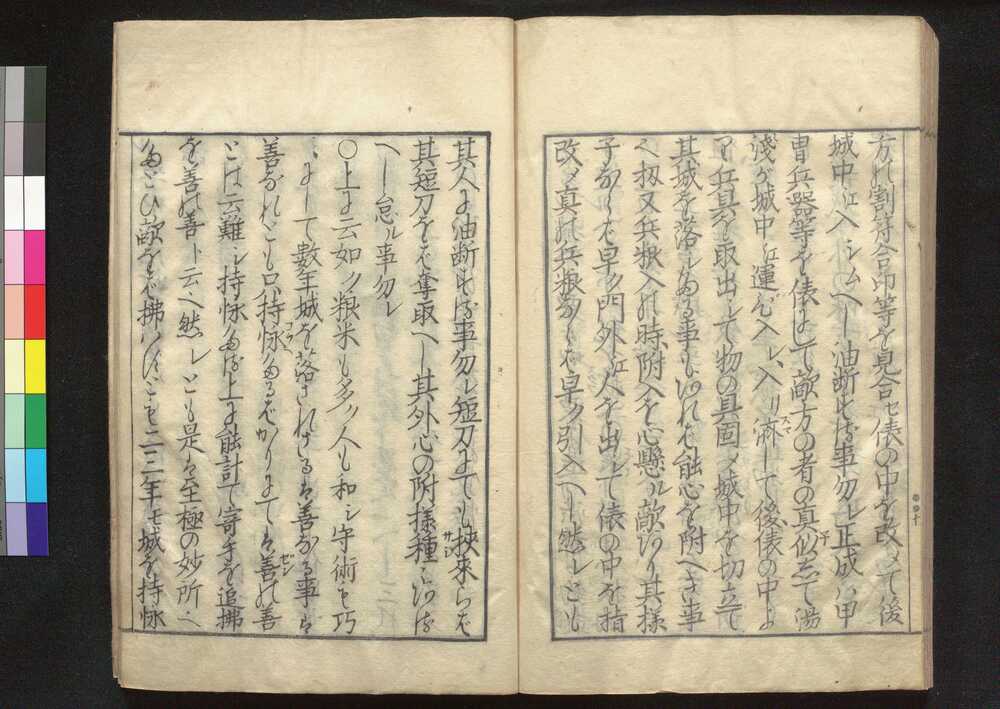 方の割符合印等を見合セ俵の中を改メて後
城中江入シムヘし油断する事勿レ正成ハ甲
冑兵器等を俵にして敵方の者の真似をして湯
浅が城中江運び入レ入リ済して後俵の中よ
リ兵具を取出して物の具固メ城中を切立て
其城を落したる事もあれば能心を附へき事
也又兵粮入の時附入を心懸ル敵あり其様
子あらば早ク門外江人を出して俵の中を指
改メ真の兵粮ならば早ク引入へし然レとも
其人に油断する事勿レ短刀にても挟来らば
其短刀をば奪取へし其外心の附様種々ある
へし怠ル事勿レ
○上に云如ク粮米も多ク人も和シ守術も巧
にして数年城を落されざるは善なる事に
善なれとも只持怺たるばかりにては善の善
とは云難シ持怺たる上に能計て寄手を追拂
を善の善ト云ヘ然レとも是は至極の妙所ヘ
たとひ敵をば拂はすとも二三年モ城を持怺